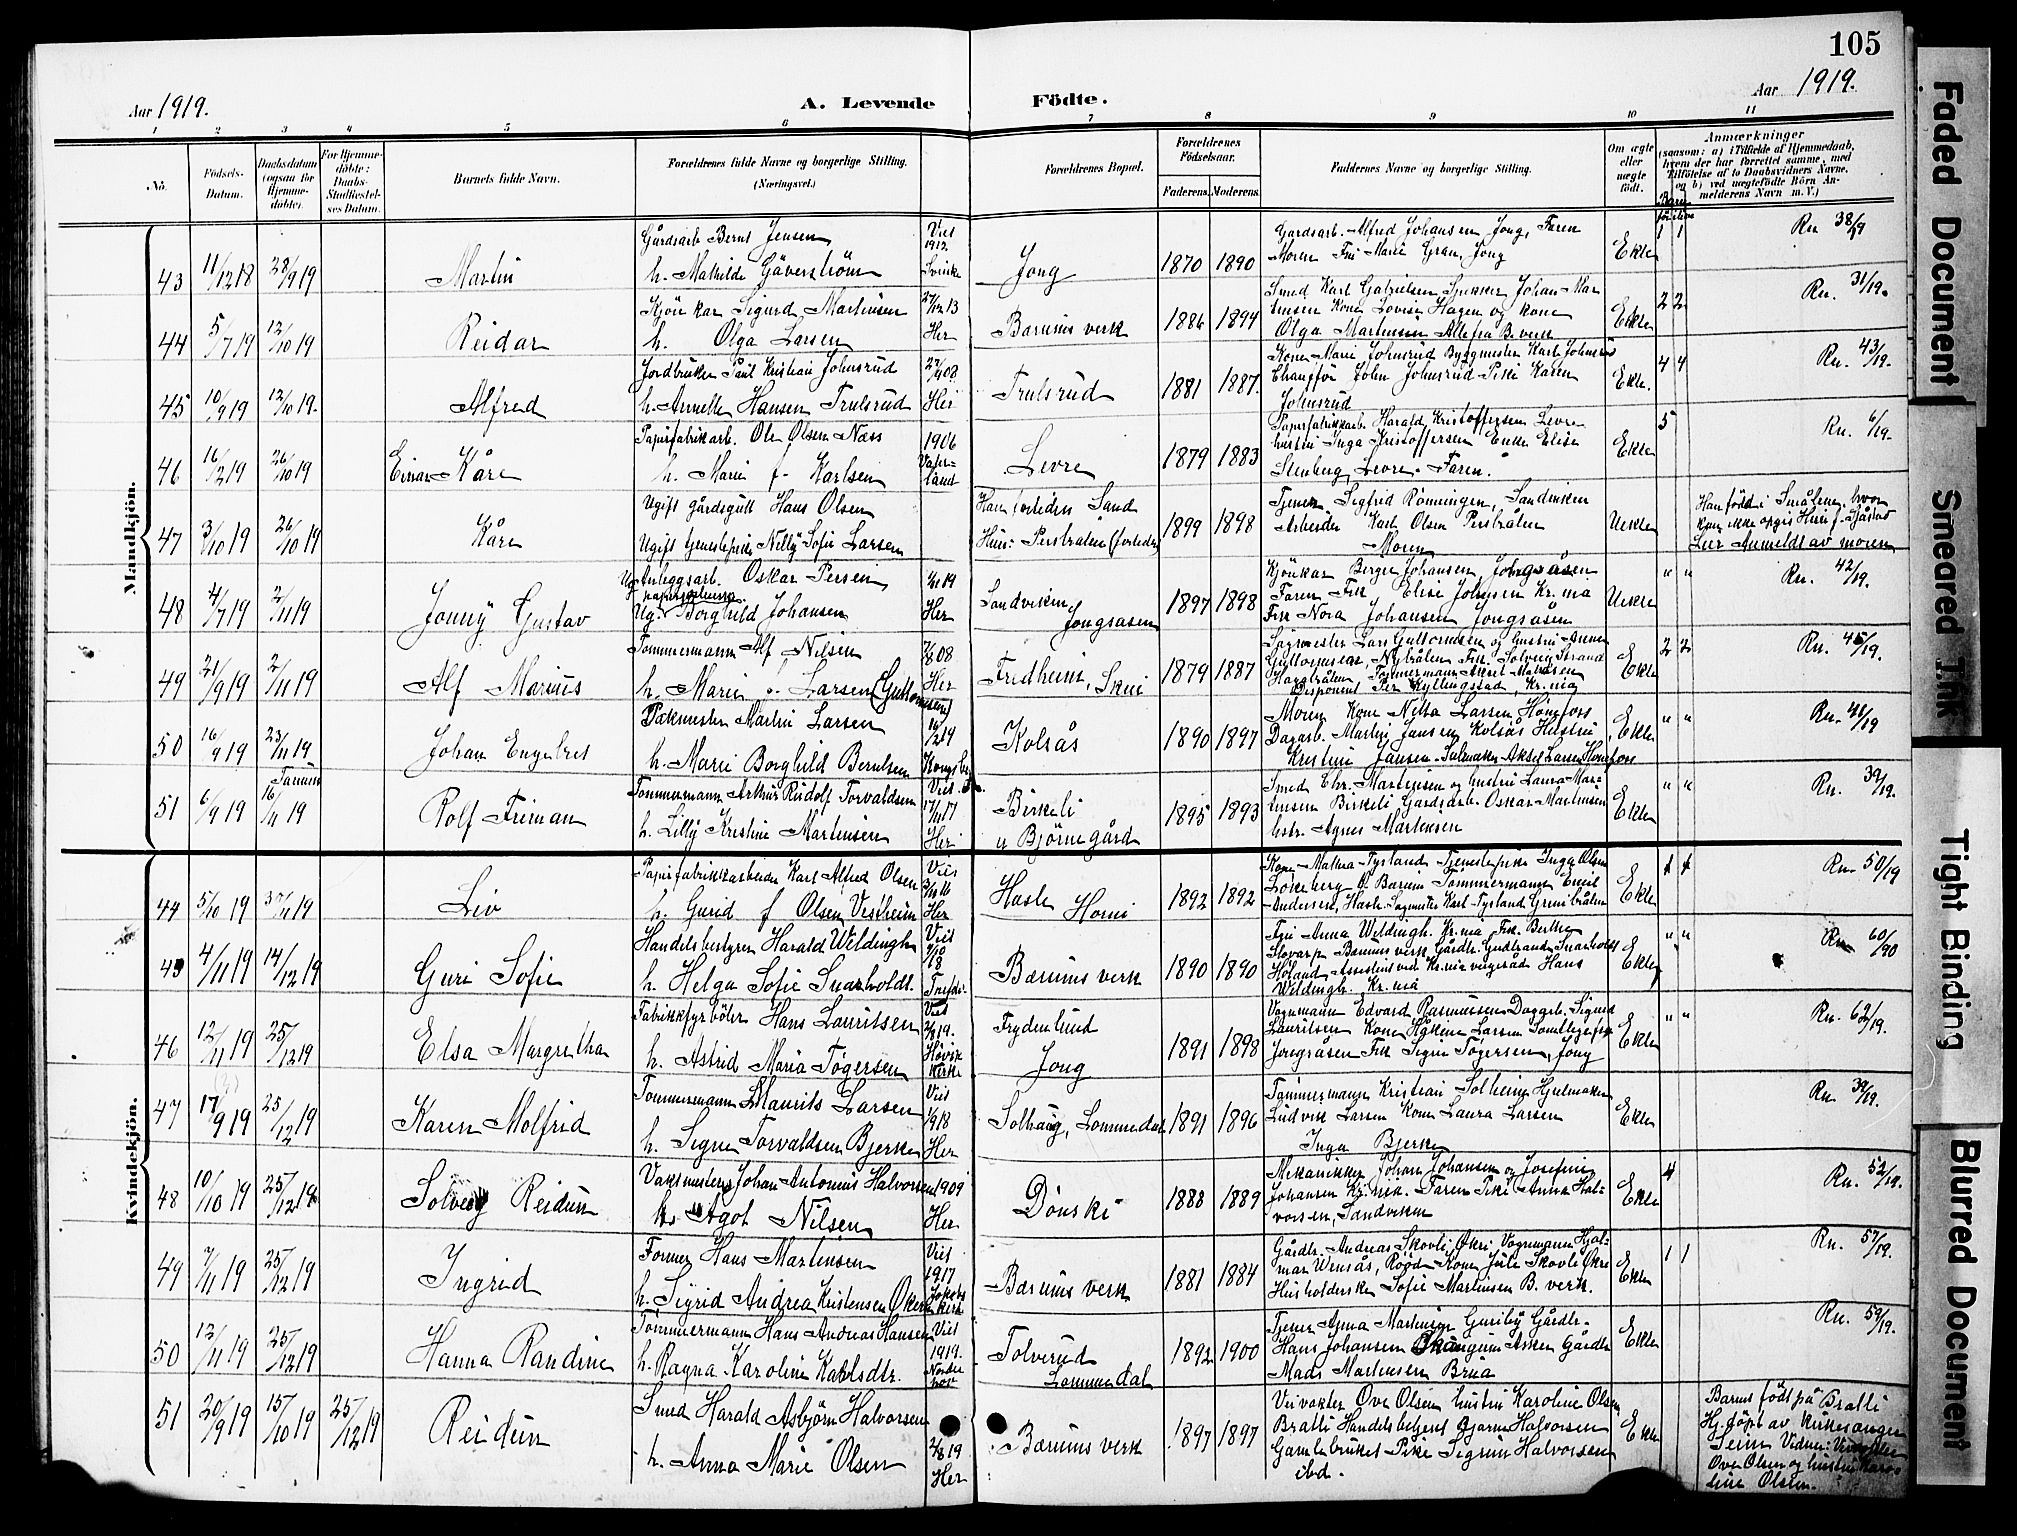 105
Aar 1919.
A. Levende
Fødte.
Aar 1919.
1 2 3 4 5 6 7 8 9 10 11
No.
Fødsels-Datum.
Daabsdatum (ogsaa for Hjemme-døbte).
For Hjemme-døbte: Daabs-Stadfæstel-ses Datum.
Barnets fulde Navn.
Forældrenes fulde Navne og borgerlige Stilling. (Næringsvei.)
Forældrenes Bopæl.
Forældrenes Fødselsaar.
Faderens. Moderens.
Faddernes Navne og borgerlige Stilling.
Om ægte eller uægte født.
Anmærkninger
(saasom: a) i Tilfælde af Hjemmedaab,
hvem der har forrettet samme, med
Tilføielse af to Daabsvidners Navne,
og b) ved uægtefødte Børn An-
melderens Navn m. V.)
Mandkjön.
43 11/12 18 28/9 19 Martin
Gårdsarb. Bernt Jensen
h. Mathilde Gäverström
Viet 1912
Jong 1870 1890
Gardsarb. Alfred Johansen Jong, Faren
Moren Frk Marie Gran, Jong
Ekte 1 1 Rn 38/19
44 5/7 19 12/10 19 Reidar
Kjörekar Sigurd Martinsen
h. Olga Larsen
27/12 13 Her
Bærums verk 1886 1894
Smed Karl Gabrielsen Snekker Johan Mar
tinsen Kone Lovise Hagen og kone
Olga Martinsen Alle fra B. verk
Ekte 2 2 Rn. 31/19.
45 10/9 19 12/10 19. Alfred
Jordbruker Paul Kristian Johnsrud
h. Annette Hansen Trulsrud
Her
Trulsrud 1881 1887.
Kone Marie Johnsrud Byggmester Karl Johnsrud
Chaufför John Johnsrud Pike Karen
Johnsrud
Ekte. 4 4 Rn. 43/19.
46 16/2 19 26/10 19 Einar Kåre
Papirfabrikarb. Ole Olsen Næss
h. Marie f. Karlsen
1906
Levre 1879 1883
Papirfabrikkarb Harald Kristoffersen Levre
hustru Inga Kristoffersen Enke Elise
Stenberg, Levre. Faren.
Ekte 5 Rn. 6/19.
47 3/10 19 26/10 19 Kåre
Ugift gårdsgutt Hans Olsen
Ugift tjenestepike Nelly Sofie Larsen
Han: fortiden Sand
Hun: Perstrålen (fortiden)
1899 1898
Tjener Sigfrid Rønningen, Sandviken
Arbeider Karl Olsen Perstrålen
Moren
Uekte
Han född i Smålene, hvor
kan ikke opgis Hun f.
Anmeldt av moren
48 4/7 19 2/11 19 Jonny Gustav
Ug. Anleggsarb. Oskar Persen
Ug. Borghild Johansen
Her
Sandviken
Jongsåsen
1897 1898
Kjörekar Birger Johansen, Jongsåsen
Faren Frk Elise Johnsen Kr.nia
Frk Nora Johansen Jongsåsen
Uekte " " Rn. 42/19.
49 21/9 19 2/11 19 Alf Marius
Tömmermann Alf Nilsen
h. Marie f. Larsen (Guttormsen)
Her
Fredheim, Skui 1879 1887
Sagmester Lars Guttormsen og hustru Anna
Guttormsen, Nybråten Frk. Solveig Strand
Tömmermann
Disponent Per Kyllingstad, Kr.nia
Ekte 2 2 Rn. 45/19.
50 16/9 19 23/11 19 Johan Engebret
Pakmester Martin Larsen
h. Marie Borghild Berntsen
Kongsberg
Kolsås 1890 1897
Moren Kone Netta Larsen Hønefoss
Dagarb. Martin Jansen Kolsås Hustru
Kristine Jansen Salmaker Aksel Larsen Hönefoss
Ekte " " Rn. 41/19
51 6/9 19 Tanum 16/11 19 Rolf Friman
Tömmermann Arthur Rudolf Torvaldsen
h. Lilly Kristine Martinsen
Viet 17/11 17 Her
Birkeli
Björnegård
1895 1893
Smed Chr. Martinsen og hustru Laura Mar-
tinsen Birkeli Gårdsarb. Oskar Martinsen
hstr. Agnes Martinsen
Ekte " " Rn. 39/19.
Kvindekjön.
44 5/10 19 Liv
Papirfabrikkarbeider Karl Alfred Olsen
h. Gurid f. Olsen Vestheim
Viet Her
Hasle Horni 1892 1892
Kone Mathea Tysland Tjenestepike Inga Olsen
Løkeberg V. Bærum Tömmermann Emil
Andersen, Hasle Sagmester Karl Tysland Grinibråten
Ekte 1 1 Rn. 50/19
45 4/11 19 14/12 19 Guri Sofie
Handelsbestyrer Harald Weldingh
h. Helga Sofie Snarholdt.
Viet
Bærums verk 1890 1890
Fru Anna Weldingh Kr.nia Frk. Bertha
Bærums verk Gårdbr. Gudbrand Snarholdt
Høland Assistent ved Kr.nia vergeråd Hans
Weldingh Kr.nia
Ekte " " Rn 60/90
46 12/11 19 25/12 19 Elsa Margretha
Fabrikkfyrböter Hans Lauritsen
h. Astrid Maria Tøgersen
Viet Høvik kirke
Frydenlund
Jong
1891 1898
Vognmann Edvard Rasmussen Dagarb. Sigurd
Lauritsen Kone Hakine Larsen Samtlige fra
Jongsåsen Frk Sigrid Tøgersen, Jong
Ekte " " Rn. 62/19.
47 17/9 19 25/12 19 Karen Molfrid
Tömmermann Maurits Larsen
h. Signe Torvaldsen Bjerke
Viet 1918 Her
Solhaug, Lommedal 1891 1896
Tömmermann Kristian Solheim Hjulmaker
Ludvik Larsen Kone Laura Larsen
Inga Bjerke
Ekte Rn. 39/19.
48 10/10 19 25/12 19 Solveig Reidun
Vaktmester Johan Antonius Halvorsen
h. Agot Nilsen
1909 Her
Dønski 1888 1889
Mekanikker Johan Johansen og Josefine
Johansen Kr.nia. Faren Pike Anna Hal-
vorsen, Sandviken
Ekte 4 Rn. 52/19.
49 7/11 19 25/12 19 Ingrid
Former Hans Martinsen
h. Sigrid Andrea Kristensen Økern
Viet 1917 Jakobs kirke
Bærums verk 1881 1884
Gårdbr. Andreas Skovli Økri Vognmann Hjal-
mar Wensås, Röod Kone Julie Skovli Økri
Husholderske Sofie Martinsen B. verk.
Ekte 1 1 Rn. 57/19.
50 12/11 19 25/12 19 Hanna Randine
Tömmermann Hans Andreas Hansen
h. Ragna Karoline Karlsdtr.
Viet 1919. Norderhov
Tolverud
Lommedal
1892 1900
Tjener Anna Martinsen Guriby Gårdbr.
Hans Johansen Skaugum Asker Gårdbr
Mads Martinsen Brua
Ekte Rn. 59/19.
51 20/9 19 15/10 19 25/12 19 Reidun
Smed Harald Asbjörn Halvorsen
h. Anna Marie Olsen
2/8 19 Her
Bærums verk 1897 1897
Veivokter Ove Olsen hustru Karoline Olsen
Bratli Handelsbetjent Bjarne Halvorsen
Gamlebruket Pike Sigrun Halvorsen
ibd.
Ekte
Barnet födt på Bratli
Hj. döpt av kirkesanger
Seim Vidner: Veivokter
Ove Olsen og hustru Karo-
line Olsen.
Faded Document
Smeared Ink
Tight Binding
Blurred Document